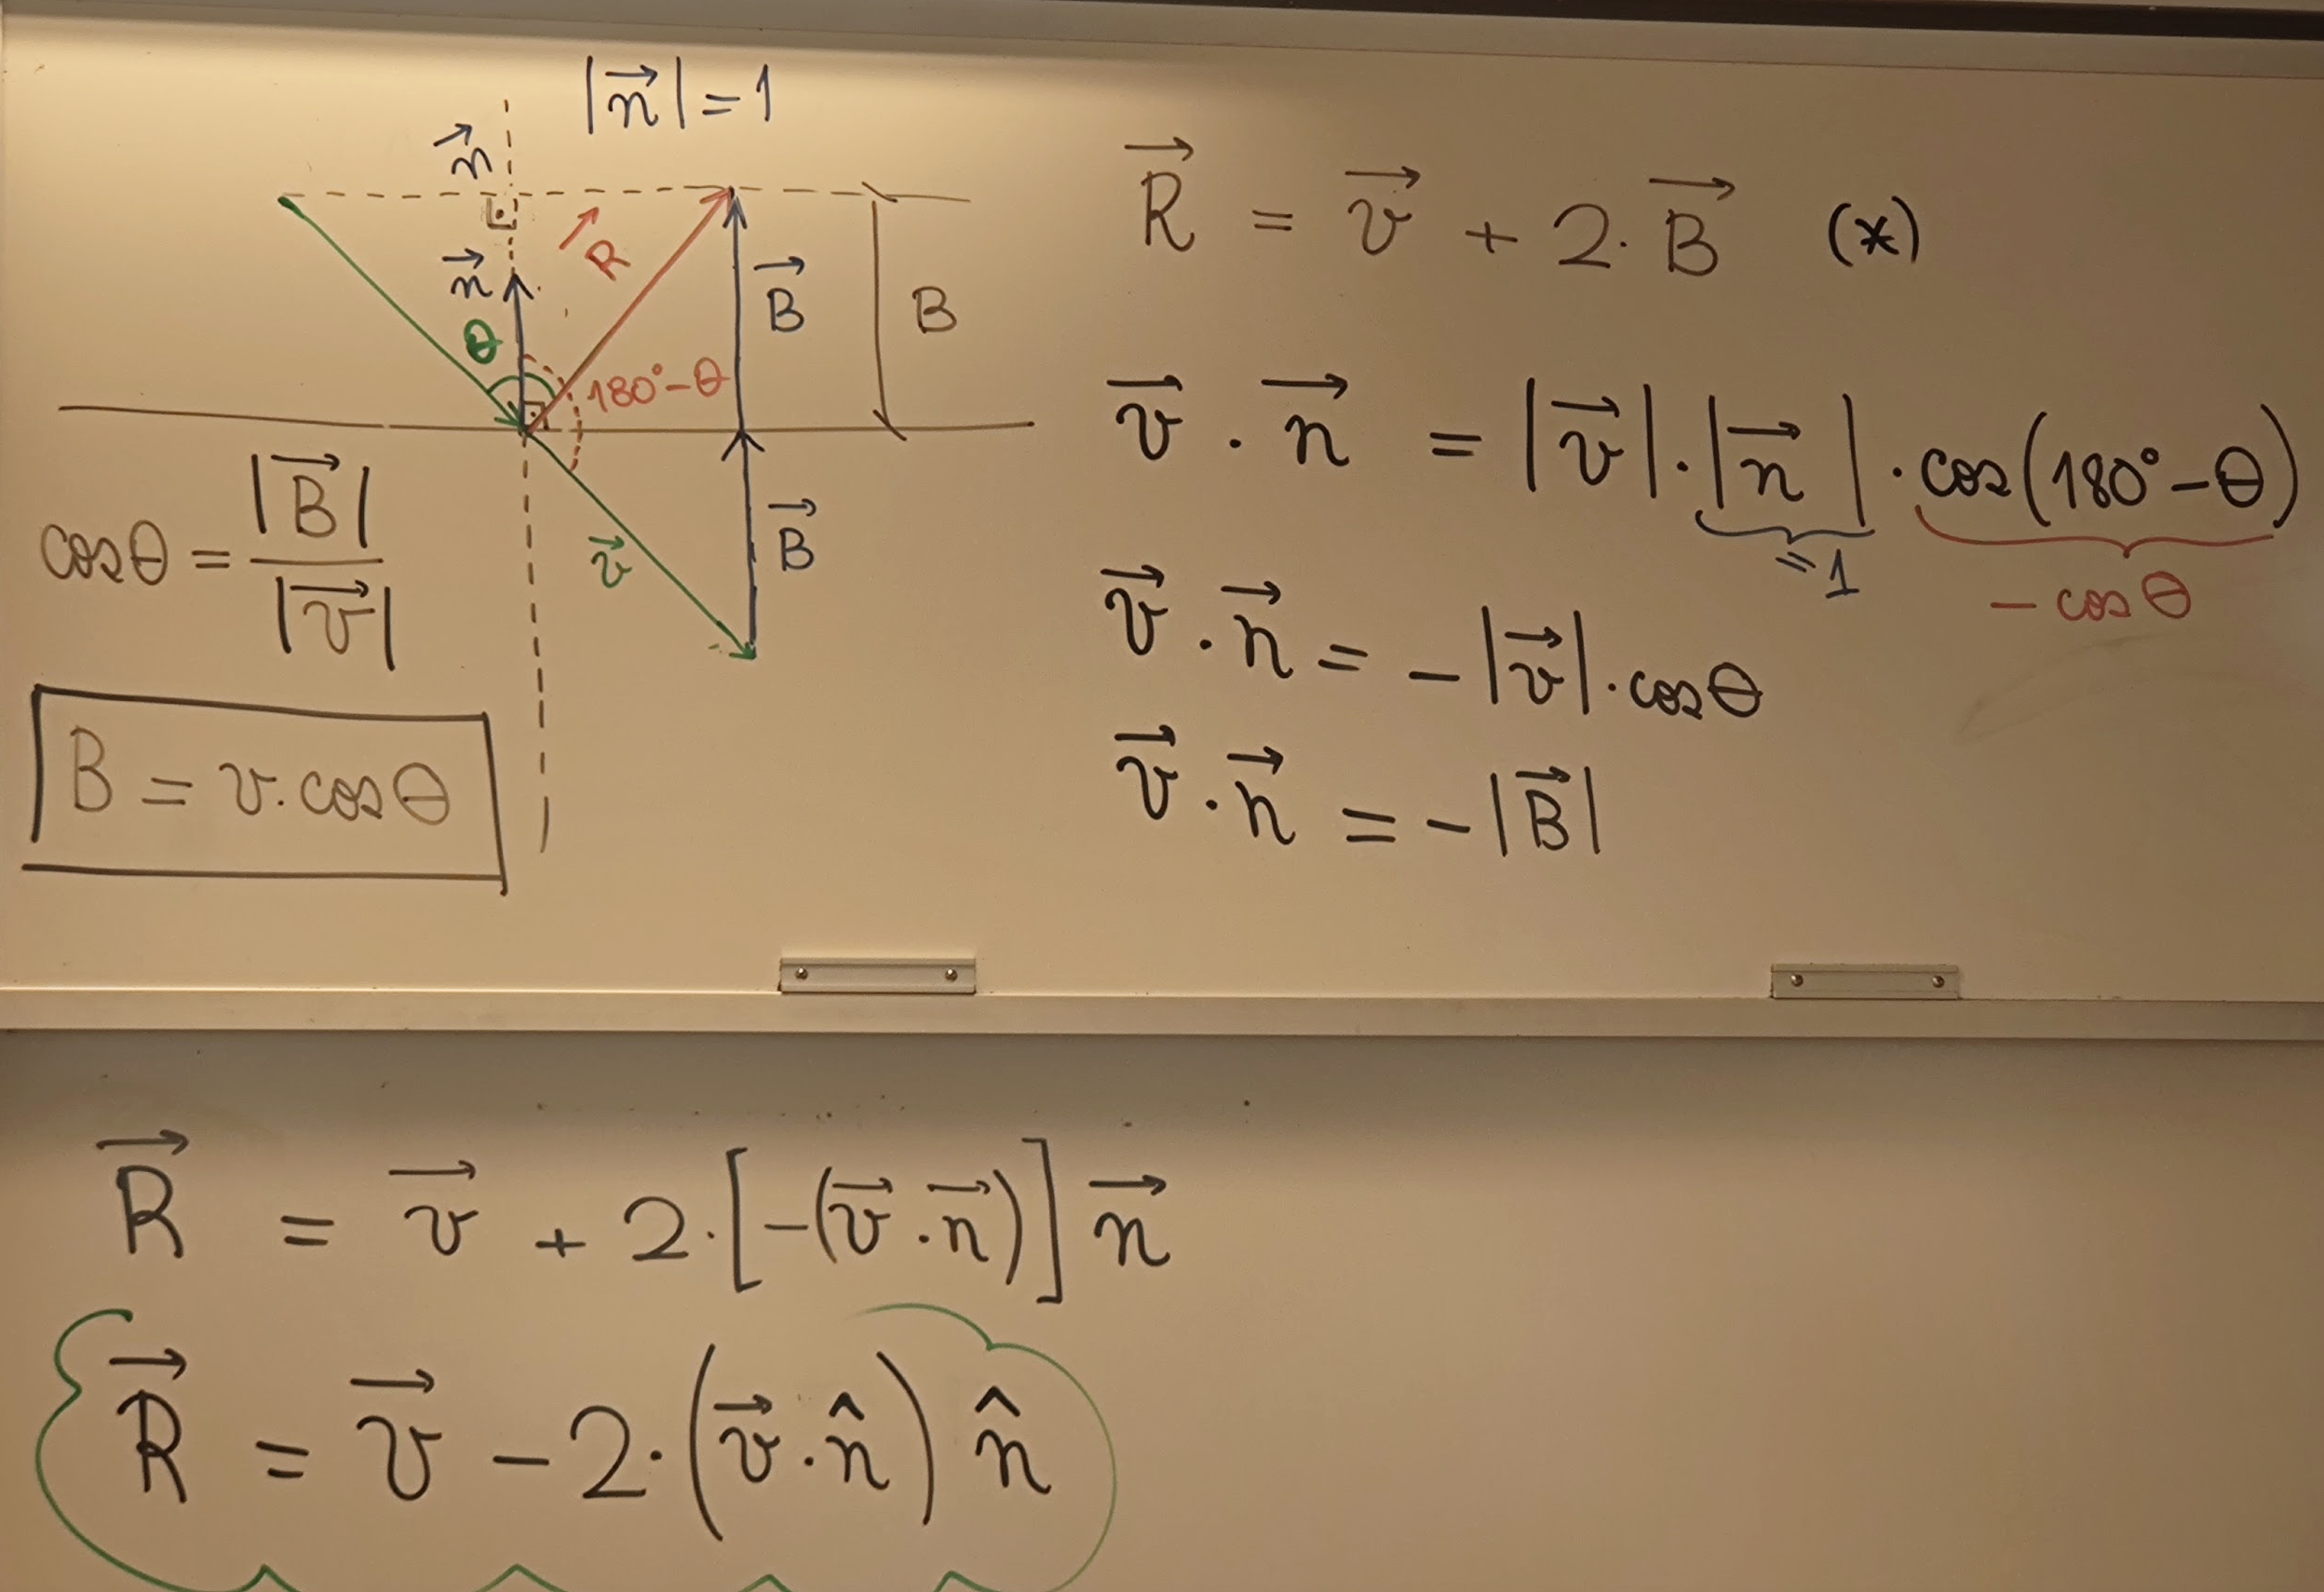 |n⃗| = 1
n⃗
n⃗
θ
R
180° – θ
B⃗
B
B⃗
v⃗
cos θ = |B⃗| / |v⃗|
B = v · cos θ
R⃗ = v⃗ + 2 · B⃗ (*)
v⃗ · n⃗ = |v⃗| · |n⃗| · cos(180° – θ)
= 1
– cos θ
v⃗ · n⃗ = – |v⃗| · cos θ
v⃗ · n⃗ = – |B⃗|
R⃗ = v⃗ + 2 · [–(v⃗ · n⃗)] n⃗
R⃗ = v⃗ – 2 · (v⃗ · n̂) n̂